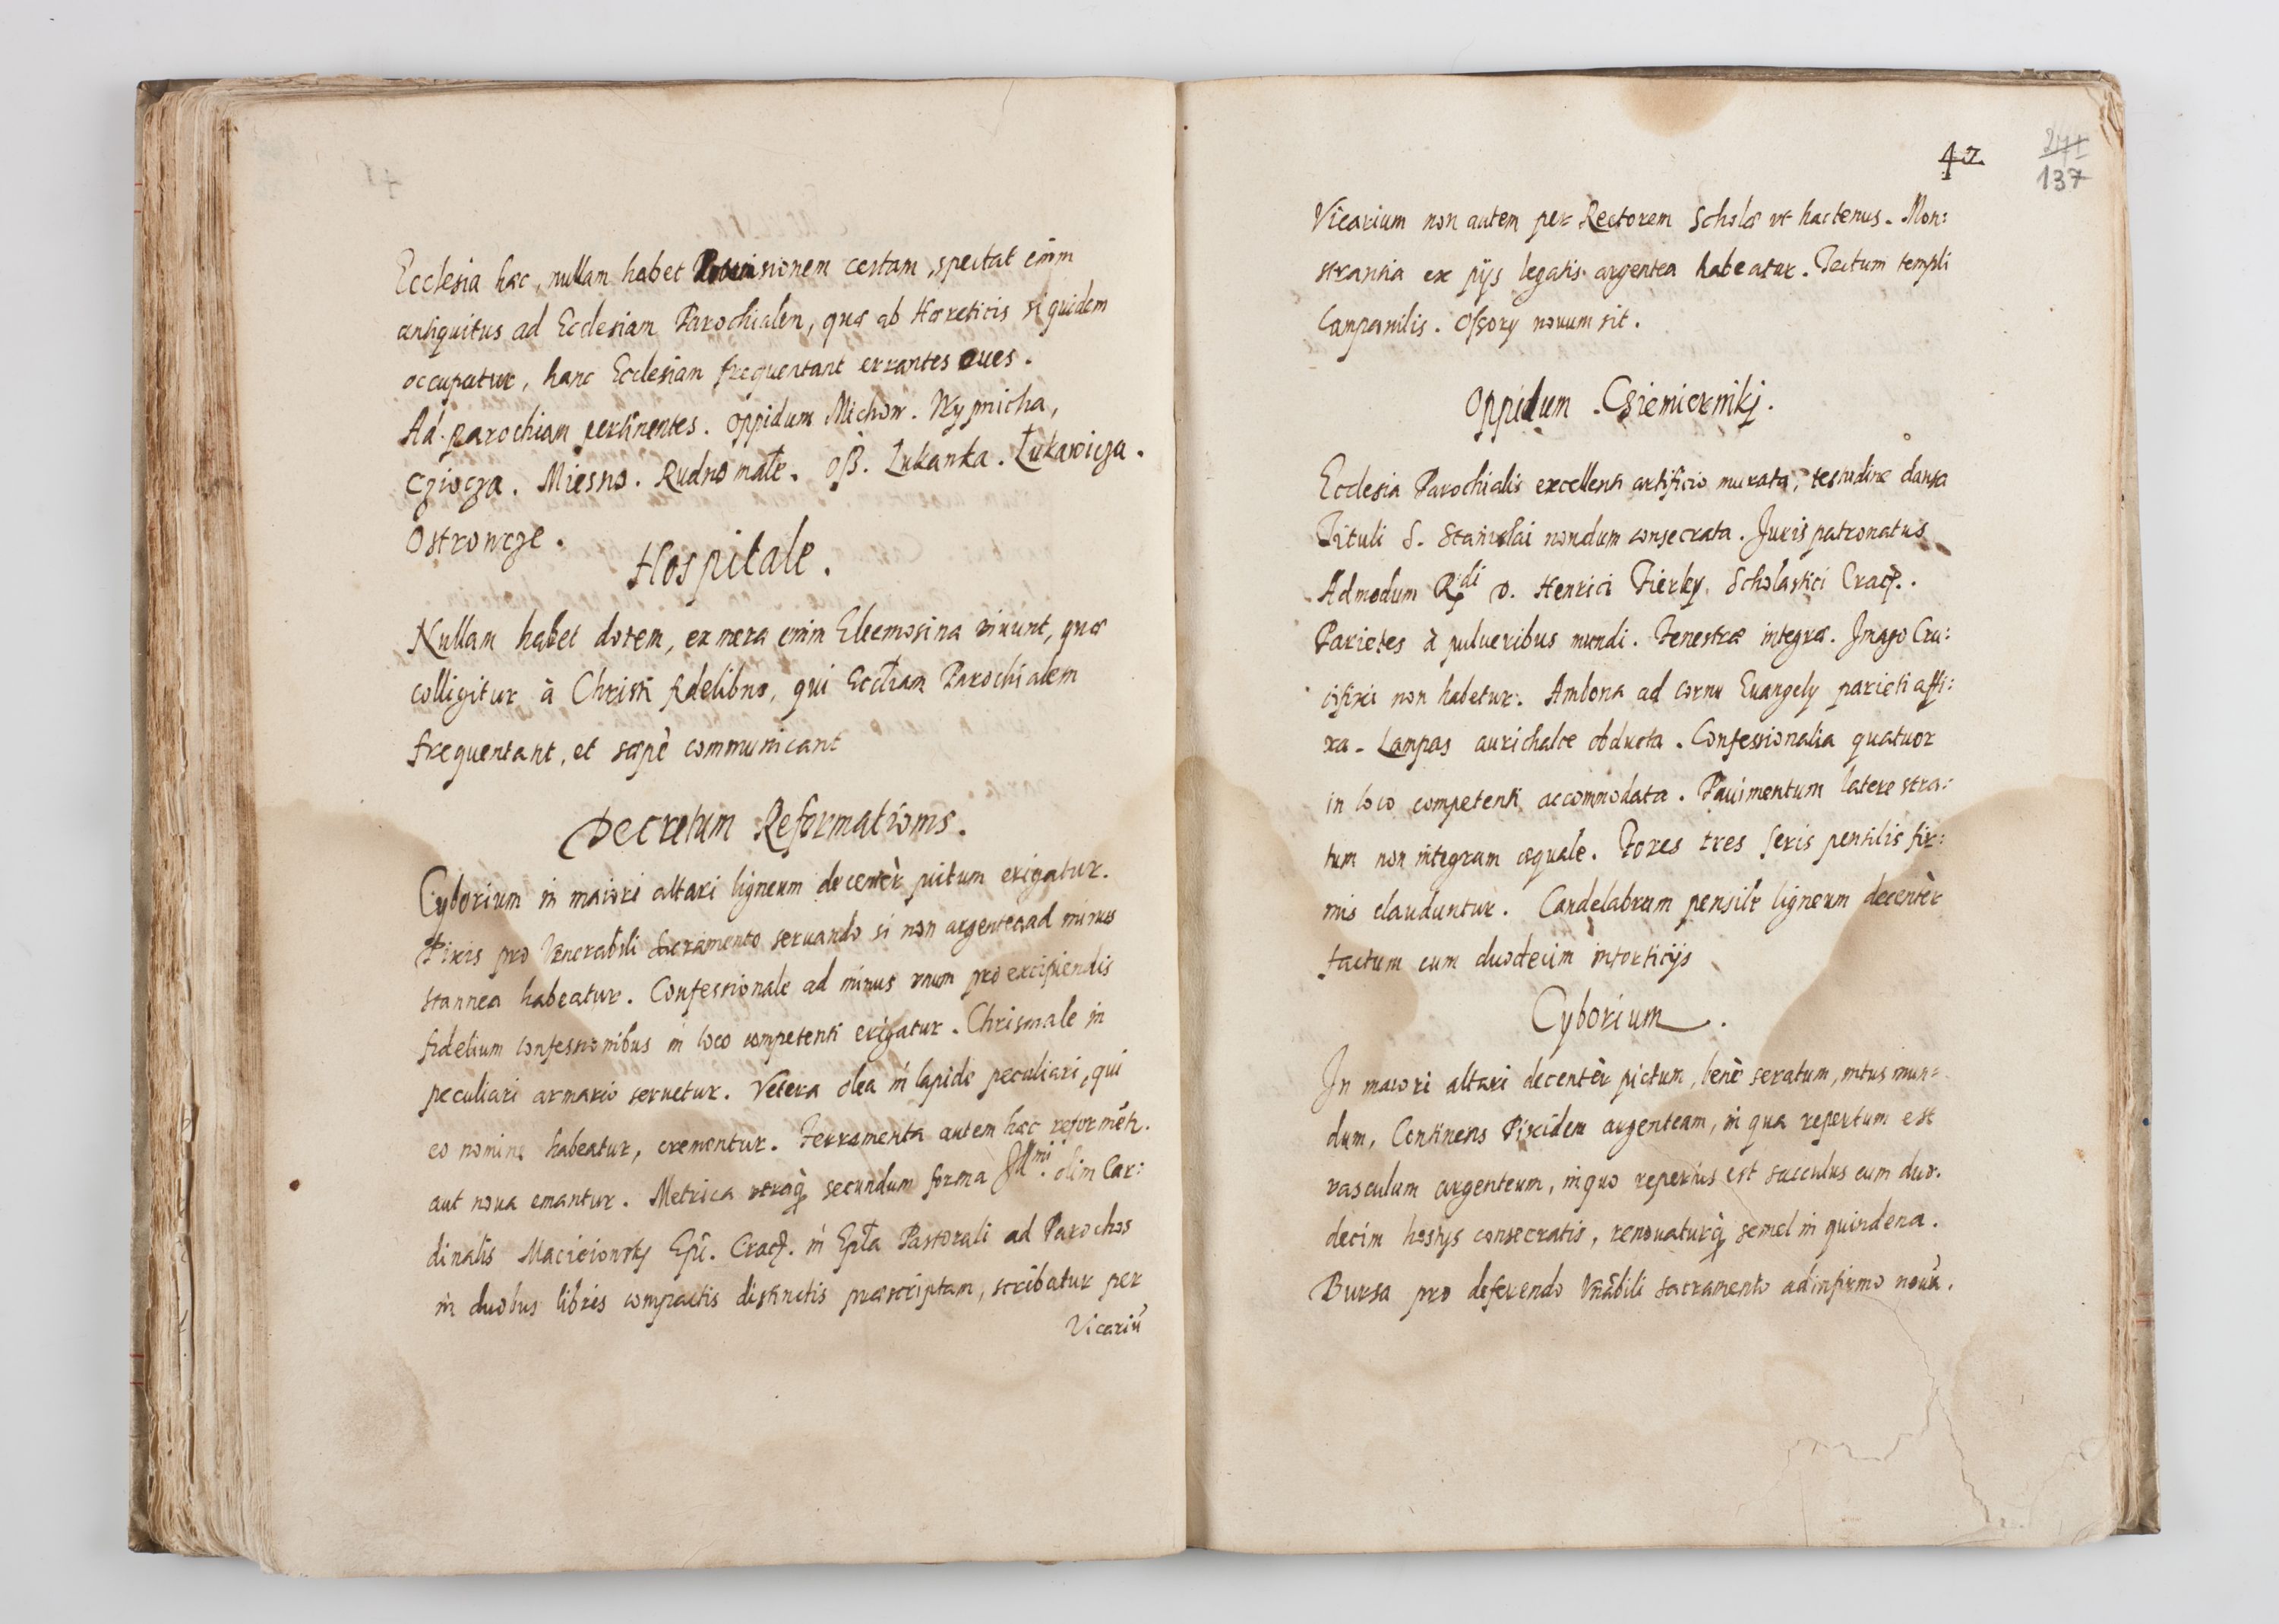 Ecclesia hæc, nullam habet Prouisionem certam, spectat enim
antiquitus ad Ecclesiam Parochialem, quæ ab Hæreticis siquidem
occupatur, hanc Ecclesiam frequentant errantes oues.
Ad parochiam pertinentes. Oppidum Michow. Wypnicha,
Miesno. Rudno małe. Łukawka. Łukawicza.
Ostrowcze.
Hospitale.
Nullam habet dotem, ex mera enim Eleemosina viuunt, quæ
colligitur à Christi fidelibus, qui Eccliam Parochialem
frequentant, et sæpè communicant
Decretum Reformationis.
Cyborium in maiori altari ligneum decentèr pictum erigatur.
Pixis pro Venerabili Sacramento seruando si non argentea ad minus
stannea habeatur. Confessionale ad minus vnum pro excipiendis
fidelium confessionibus in loco competenti erigatur. Chrismale in
peculiari armario seruetur. Vetera olea in lapide peculiari, qui
eo nomine habeatur, crementur. Ferramenta autem hæc
aut noua emantur. Metrica vtraq; secundum formã Illmi. olim Car:
dinalis Macieiowsky Epĩ. Crac. in Epla Pastorali ad Parochos
in duobus libris compactis distinctis præscriptam, scribatur per
Vicariũ
42
271
137
Vicarium non autem per Rectorem Scholæ vt hactenus. Mon:
strantia ex pijs legatis argentea habeatur. Tectum templi
Campanilis. Ossory nouum sit.
Oppidum Csiemiernikj.
Ecclesia Parochialis excellenti artificio murata, testudine clausa
Tituli S. Stanislai nondum consecrata. Juris patronatus
Admodum Rdi D. Henrici Fierley Scholastici Crac.
Parietes à pulueribus mundi. Fenestræ integræ. Jmago Cru:
cifixi non habetur. Ambona ad cornu Euangely parieti affi:
xa. Lampas aurichalce obducta. Confessionalia quatuor
in loco competenti accommodata. Pauimentum latere stra:
tum non integrum æquale. Fores tres seris pensilis fir:
mis clauduntur. Candelabrum pensile ligneum decentèr
factum cum duodecim intorticijs
Cyborium.
Jn maiori altari decentèr pictum, benè seratum, intus mun=
dum, Continens Pixidem argenteam, in qua repertum est
vasculum argenteum, in quo repertus est sacculus cum duo.
decim hostijs consecratis, renouaturq; semel in quindena.
Bursa pro deferendo Vnãbili sacramento ad infirmo nouã.